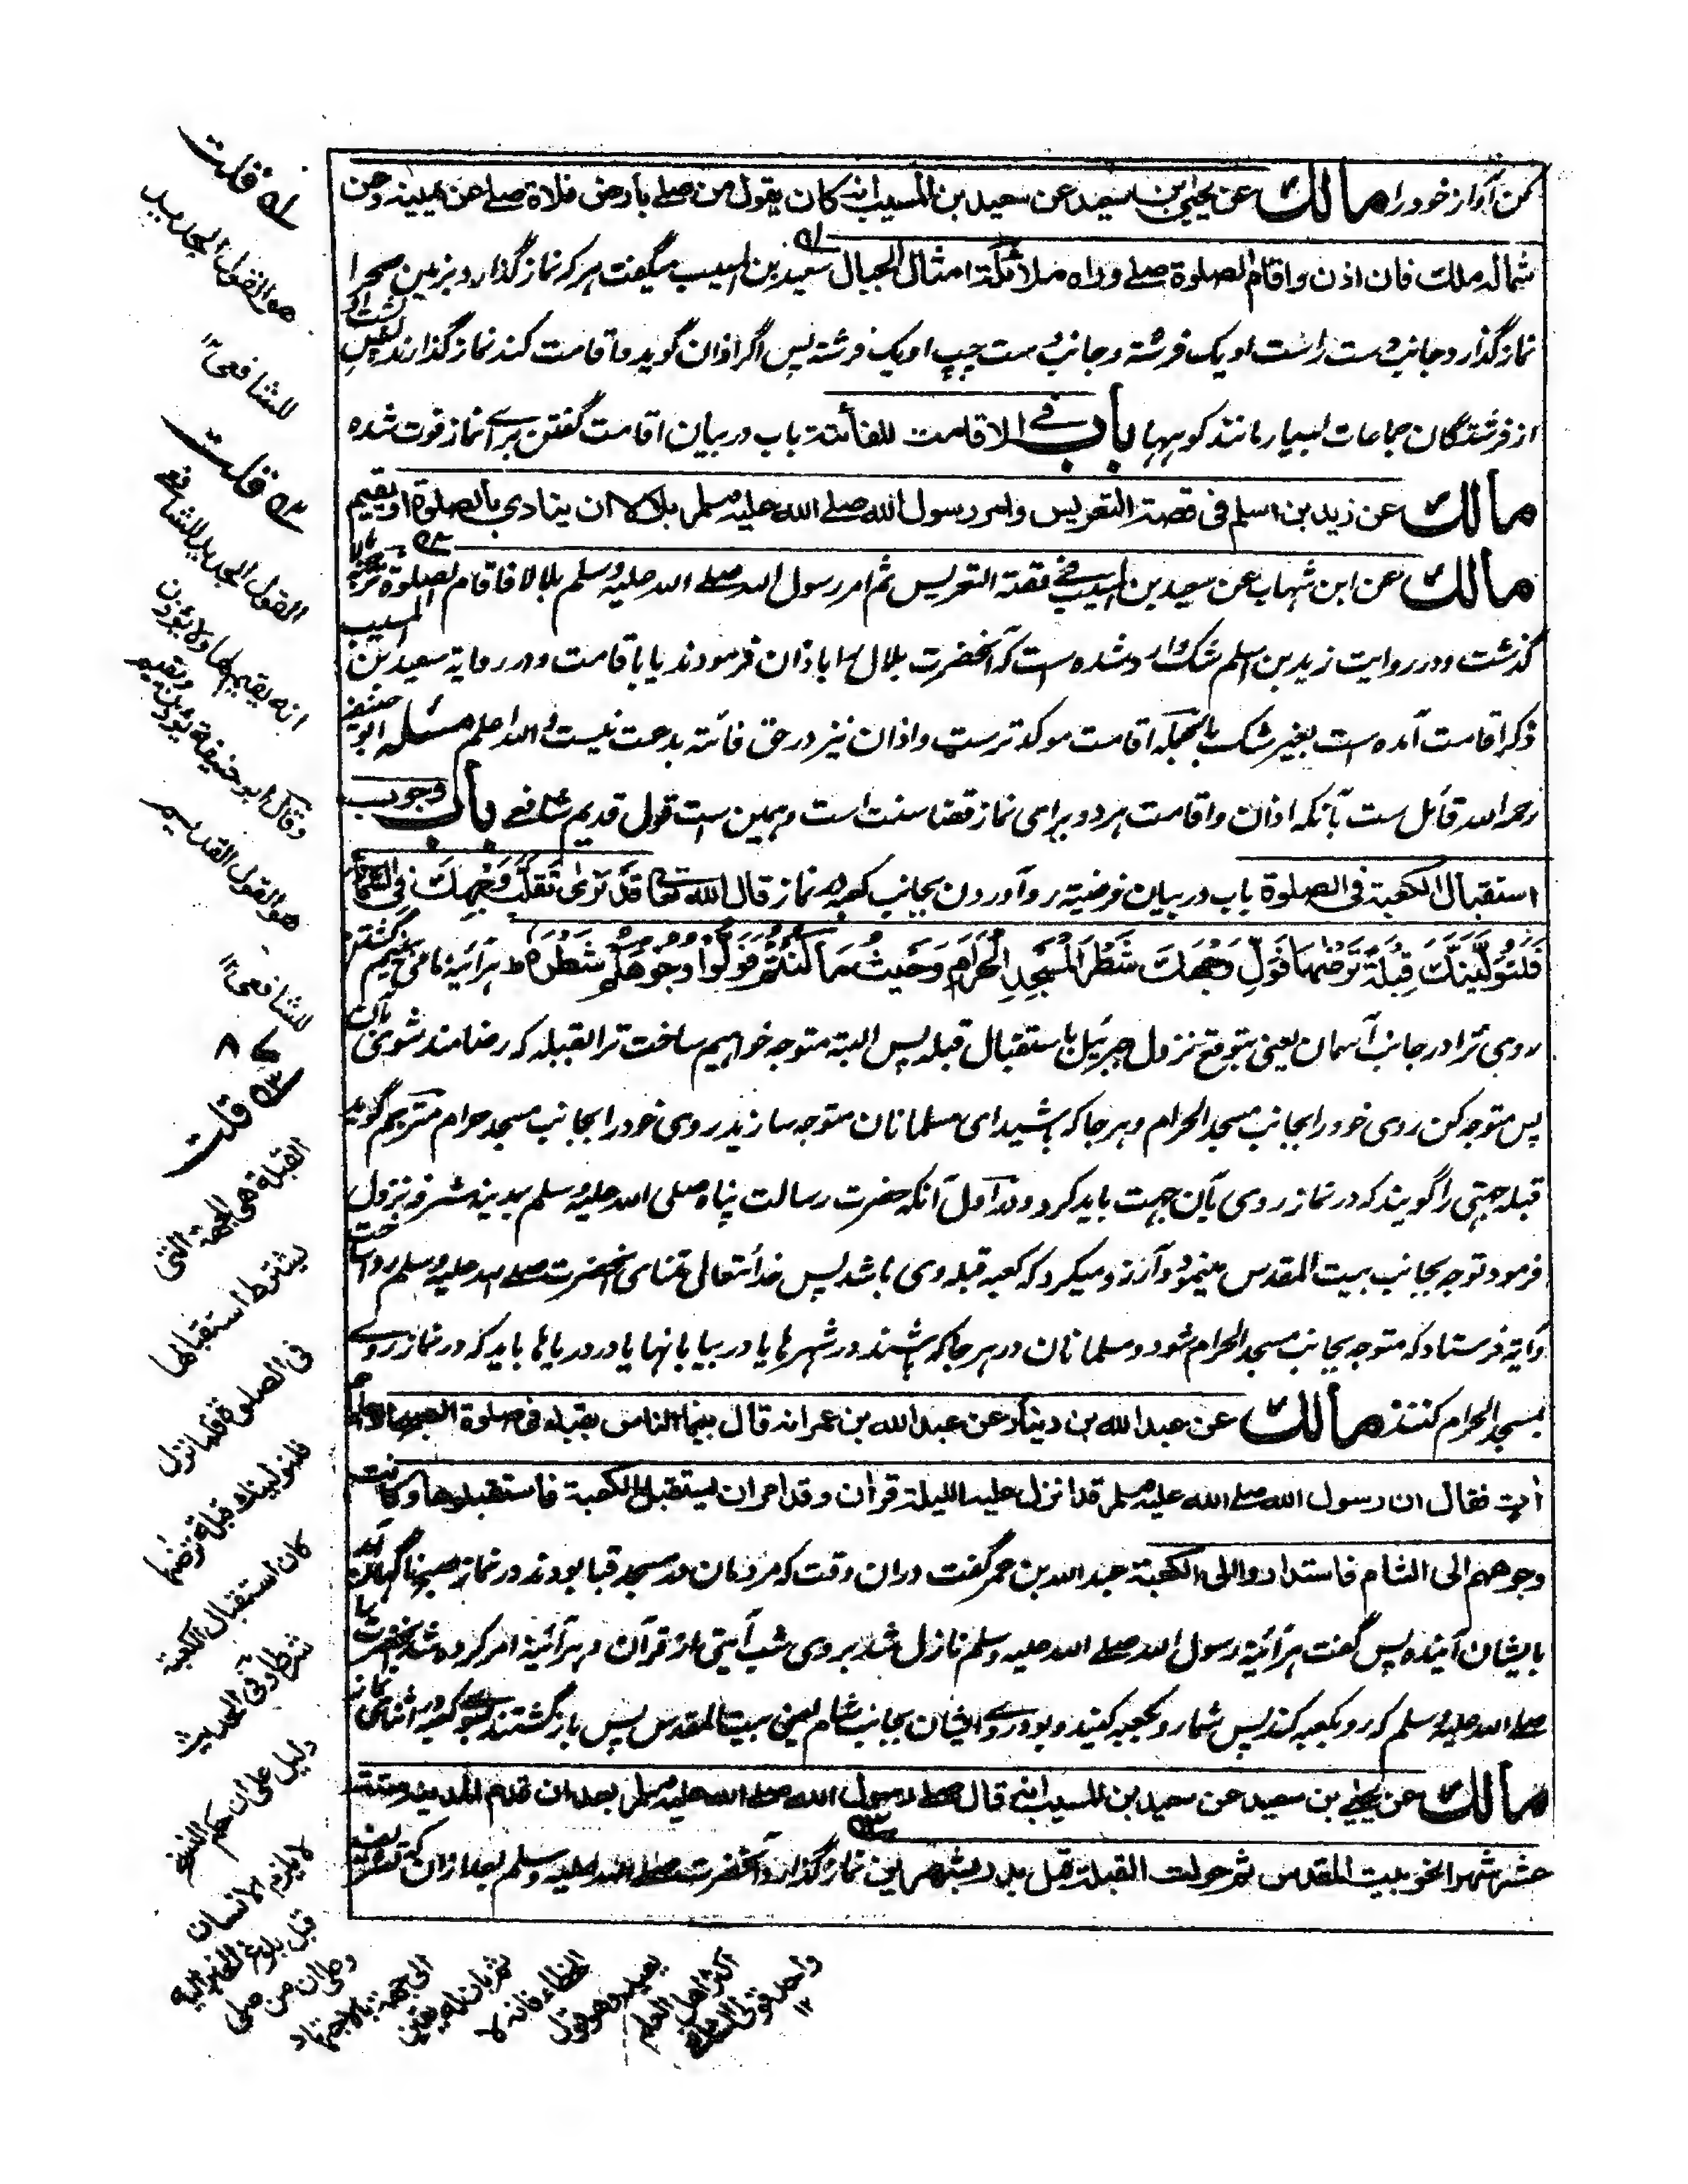 کن آواز خود را مالك عن يحيى بن سعيد عن سعيد بن المسيب انه كان يقول من صلے بارض فلاة صلے عن يمينه وعن
شماله ملك فان اذن واقام الصلوة صلے وراه ملائكة امثال الجبال سعید بن المسیب میگفت ہر کہ نماز گذارد بزمین صحرا
نماز گذارد جانب دست راست او یک فرشتہ وجانب دست چپ او یک فرشتہ پس اگر اذان گوید و اقامت کند نماز گذارند پس پشت او
از فرشتگان جماعات بسیار مانند کوہہا باب فے الاقامت للفائتة باب در بیان اقامت گفتن برای نماز فوت شده
مالك عن زيد بن اسلم فی قصة التعريس وامر رسول الله صلے الله عليه وسلم بلالا ان ينادي بالصلوة او يقيم
مالك عن ابن شهاب عن سعيد بن المسیب فے قصة التعريس ثم امر رسول الله صلے الله عليه وسلم بلالا فاقام الصلوة
گذشت و در روایت زید بن اسلم شک وارد شده است کہ آنحضرت بلال را باذان فرمودند یا باقامت و در روایة سعید بن المسیب
ذکر اقامت آمده است بغیر شک بالجملہ اقامت موکد ترست واذان نیز در حق فائتہ بدعت نیست واللہ اعلم مسئلہ ابو حنیفہ
رحمہ اللہ قائل ست بآنکہ اذان واقامت ہر دو برای نماز قضا سنت است وہمین ست قول قدیم شافعے باب وجوب
استقبال الكعبة فی الصلوة باب در بیان فرضیة رو آوردن بجانب کعبہ در نماز قال الله تعا قَدْ نَرٰى تَقَلُّبَ وَجْهِكَ فِى السَّمَآءِ
فَلَنُوَلِّيَنَّكَ قِبْلَةً تَرْضٰىهَا فَوَلِّ وَجْهَكَ شَطْرَ الْمَسْجِدِ الْحَرَامِ وَحَيْثُ مَا كُنْتُمْ فَوَلُّوْا وُجُوْهَكُمْ شَطْرَهٗ ط ہر آئینہ می بینیم گشتن
روی ترا در جانب آسمان یعنی بتوقع نزول جبرئیل باستقبال قبلہ پس البتہ متوجہ خواہیم ساخت ترا بقبلہ کہ رضامند شوی بآن
پس متوجہ کن روی خود را بجانب مسجد الحرام و ہر جا کہ باشید ای مسلمانان متوجہ سازید روی خود را بجانب مسجد حرام مترجم گوید
قبلہ جہتی را گویند کہ در نماز روی بآن جہت باید کرد و در اول آنکہ حضرت رسالت پناه صلی اللہ علیہ وسلم بمدینہ مشرفہ نزول
فرمود توجہ بجانب بیت المقدس مینمود و آرزو میکرد کہ کعبہ قبلہ وی باشد پس خدا تعالی تمنای آنحضرت صلے اللہ علیہ وسلم روا ساخت
و آیة فرستاد کہ متوجہ بجانب مسجد الحرام شود و مسلمانان در ہر جا کہ باشند در شہرہا یا در بیابانہا یا در دریاہا باید کہ در نماز روے
بمسجد الحرام کنند مالك عن عبد الله بن دينار عن عبد الله بن عمر انه قال بينما الناس بقباء فی صلوة الصبح اذ جاءهم
آت فقال ان رسول الله صلے الله عليه وسلم قد انزل عليه الليلة قران وقد امر ان يستقبل الكعبة فاستقبلوها وكانت
وجوههم الى الشام فاستداروا الى الكعبة عبد اللہ بن عمر گفت دران وقت کہ مردمان در مسجد قبا بودند در نماز صبح ناگہان آمد
بایشان آینده پس گفت ہر آئینہ رسول اللہ صلے اللہ علیہ وسلم نازل شد بروی شب آیتی از قرآن و ہر آئینہ امر کرده شد آنحضرت
صلے اللہ علیہ وسلم کہ رو بکعبہ کند پس شما رو بکعبہ کنید و بود روے ایشان بجانب شام یعنی بیت المقدس پس باز گشتند بسوے کعبہ در اثنای نماز
مالك عن يحيے بن سعيد عن سعيد بن المسيب انه قال صلے رسول الله صلے الله عليه وسلم بعد ان قدم المدينة ستة
عشر شهرا نحو بيت المقدس ثم حولت القبلة قبل بدر بشهرين نماز گذارد آنحضرت صلے اللہ علیہ وسلم بعد ازان کہ تشریف
قلت
هو القول الجديد
للشافعی
قلت
القول الجديد للشافعی
انه يقيم لها ولا يؤذن
وقال ابو حنيفة يؤذن ويقيم
هو القول القديم
للشافعی
قلت
القبلة هى الجهة التى
يشترط استقبالها
فى الصلوة فلما نزل
فلنولينك قبلة ترضها
كان استقبال الكعبة
شرطا وفى الحديث
دليل على ان حكم النسخ
لا يلزم الانسان
قبل بلوغ الخبر اليه
وعلى ان من صلى
الى جهة بالاجتهاد
ثم بان له يقين
الخطاء فانه لا
يعيد وهو قول
اكثر اهل العلم